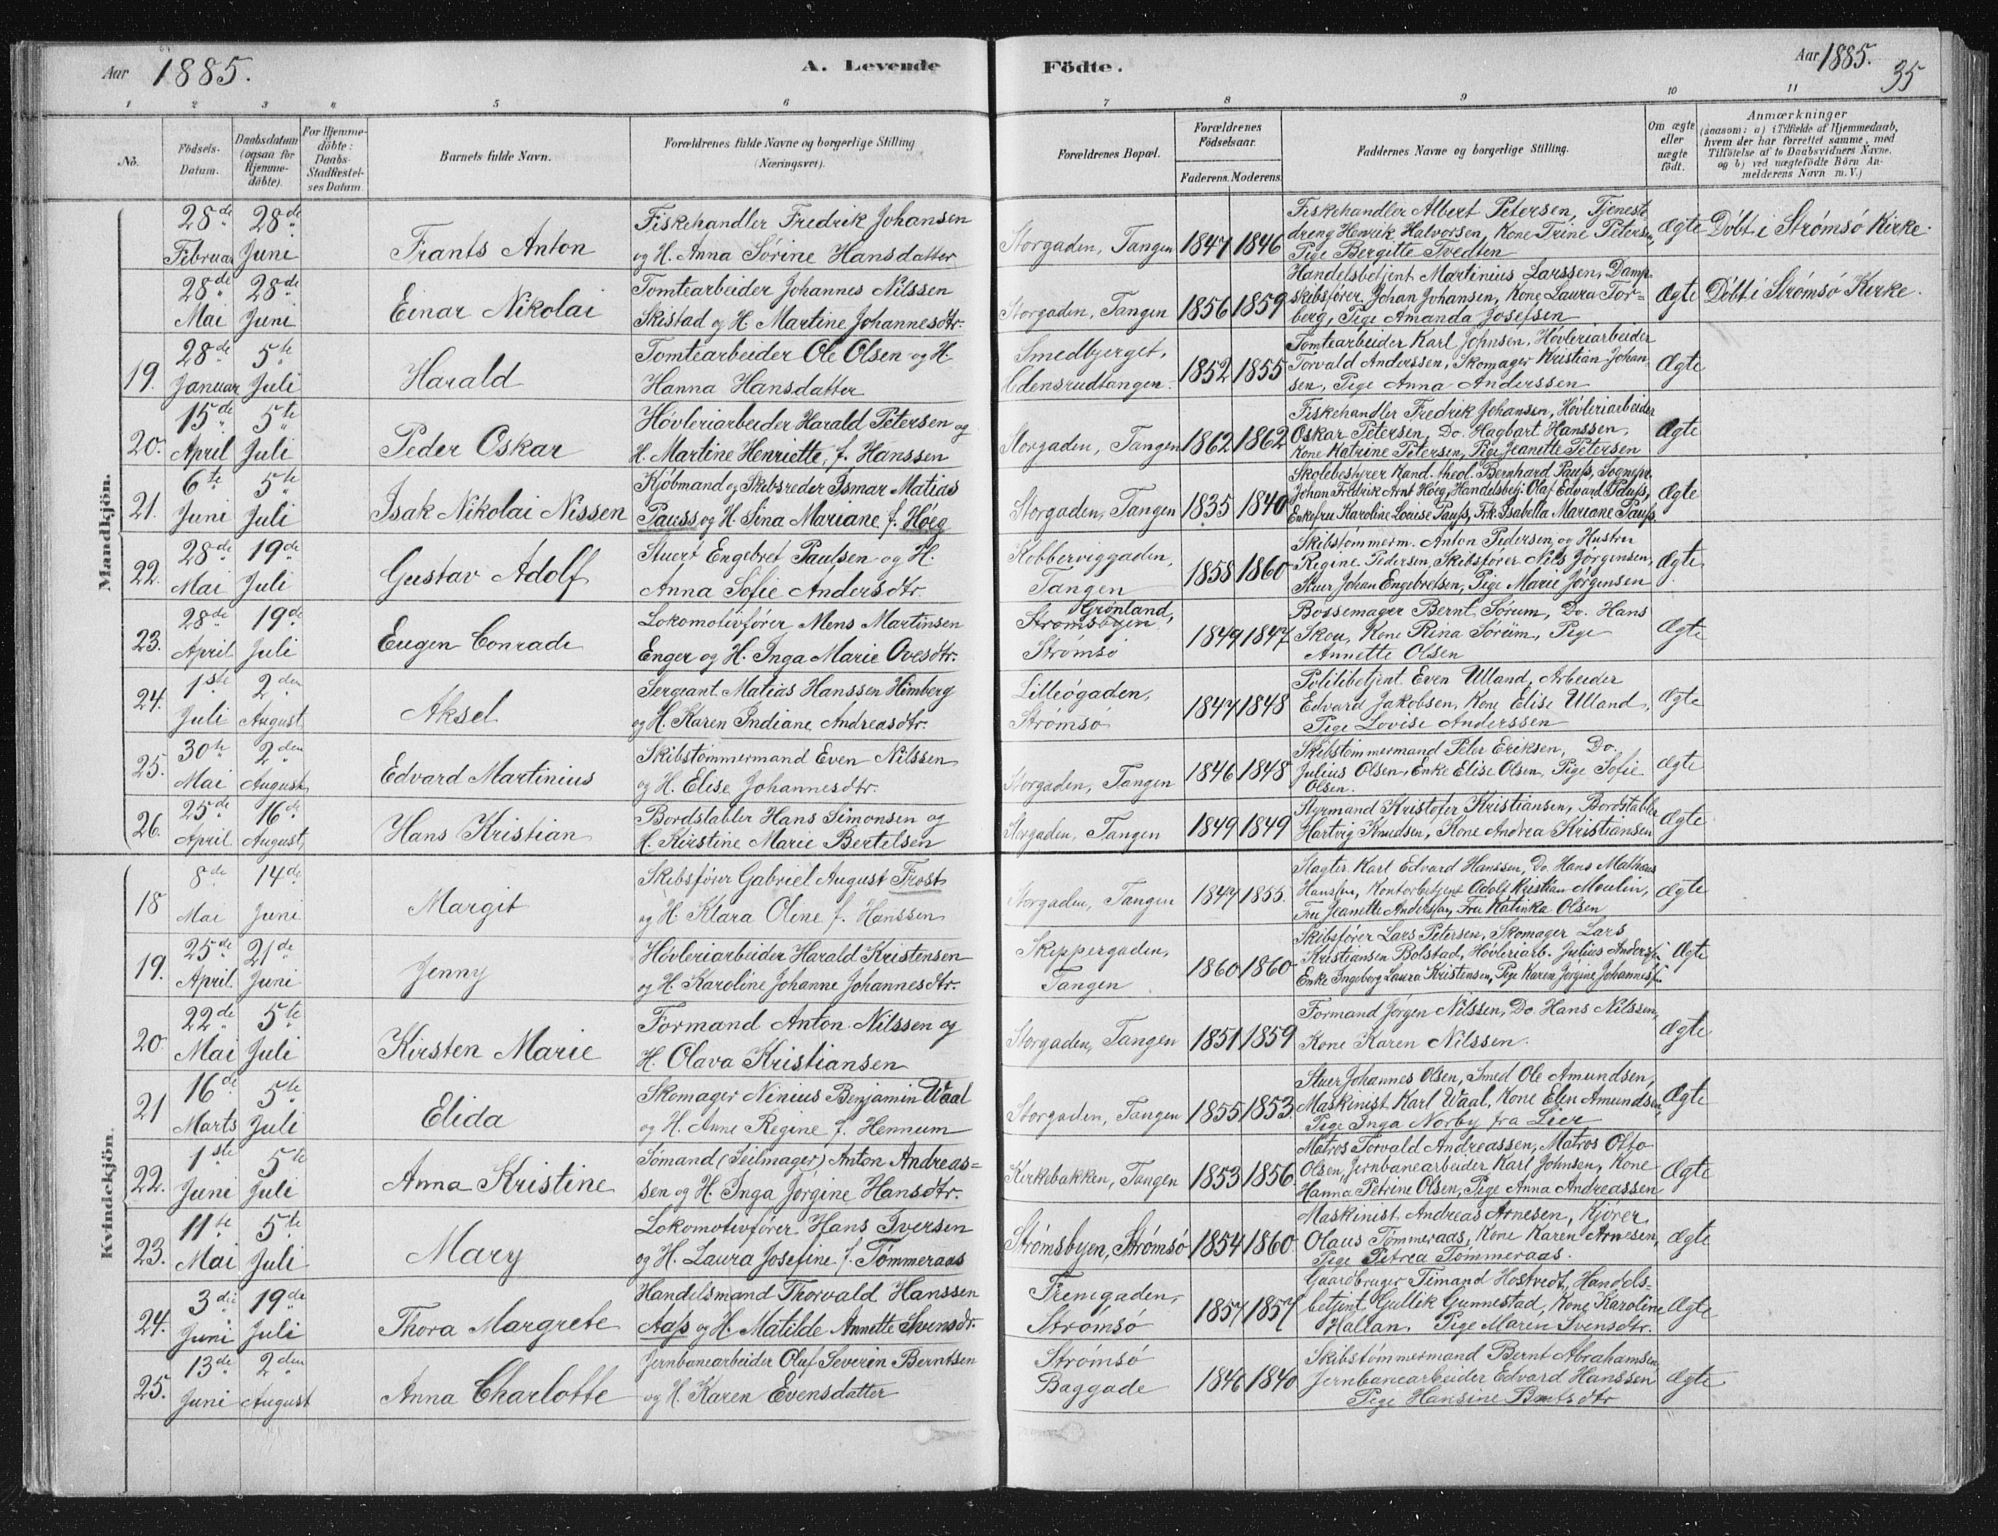 Aar 1885.
A. Levende Födte.
Aar 1885.
35
1 2 3 4 5 6 7 8 9 10 11
No.
Födsels-Datum.
Daabsdatum (ogsaa for Hjemme-döbte).
For Hjemme-döbte: Daabs-Stadfæstel-ses Datum.
Barnets fulde Navn.
Forældrenes fulde Navne og borgerlige Stilling (Næringsvei).
Forældrenes Bopæl.
Forældrenes Födselsaar. Faderens. Moderens.
Faddernes Navne og borgerlige Stilling.
Om ægte eller uægte födt.
Anmærkninger (saasom: a) i Tilfælde af Hjemmedaab, hvem der har forrettet samme, med Tilföielse af to Daabsvidners Navne, og b) ved uægtefödte Börn Anmelderens Navn m. V.)
Mandkjön.
28de Februar 28de Juni Frants Anton Fiskehandler Fredrik Johansen og H. Anna Sørine Hansdatter Storgaden, Tangen 1847 1846 Fiskehandler Albert Petersen, Tjeneste dreng Henrik Halvorsen, Kone Trine Petersen, Pige Bergitte Tvedten Ægte Döbt i Strømsö Kirke.
28de Mai 28de Juni Einar Nikolai Tomtearbeider Johannes Nilssen Skistad og H. Martine Johannesdtr. Storgaden, Tangen 1856 1859 Handelsbetjent Martinius Larssen, Damp-skibsfører Johan Johansen, Kone Laura Tor-berg, Pige Amanda Josefsen Ægte Döbt i Strømsö Kirke.
19. 28de Januar 5te Juli Harald Tomtearbeider Ole Olsen og H. Hanna Hansdatter Smedbjerget, Odensrudtangen. 1852 1855 Tomtearbeider Karl Johnsen, Hövleriarbeider Torvald Anderssen, Skomager Kristian Johan-sen, Pige Anna Anderssen Ægte
20. 15de April 5te Juli Peder Oskar Høvleriarbeider Harald Petersen og H. Martine Henriette, f. Hanssen Storgaden, Tangen 1862 1862 Fiskehandler Fredrik Johansen, Hövleriarbeider Oskar Petersen, Do. Hagbart Hanssen, Kone Katrine Petersen, Pige Jeanette Petersen Ægte
21. 6te Juni 5te Juli Isak Nikolai Nissen Kjøbmand og Skibsreder Ismar Matias Pauss og H. Sina Mariane f. Høeg Storgaden, Tangen 1835 1840 Skolebestyrer Kand. theol. Bernhard Pauss, Sognepr. Johan Fredrik Arnt Höeg, Handelsbetj. Olaf Edvard Pauss, Enkefru Karoline Louise Pauss, Frk. Isabella Mariane Pauss. Ægte
22. 28de Mai 19de Juli Gustav Adolf Stuert Engebret Paulsen og H. Anna Sofie Andersdtr. Kobberviggaden, Tangen 1858 1860 Skibstömmerm. Anton Pedersen, og Hustru Regine Pedersen, Skibsfører Nils Jørgensen, Stuer Johan Engebretsen, Pige Marie Jørgensen Ægte
23. 28de April 19de Juli Eugen Conradi Lokomotivfører Mens Martinsen Enger og H. Inga Marie Ovesdtr. Grønland, Strømsbyen, Strømsö 1849 1847 Bossemager Bernt Sørum, Do. Hans Skou, Kone Rina Sørum, Pige Annette Olsen Ægte
24. 1ste Juli 2den August Aksel Sergeant Matias Hanssen Himberg og H. Karen Indiane Andreasdtr. Lilleögaden, Strømsö 1847 1848 Politibetjent Even Ulland, Arbeider Edvard Jakobsen, Kone Elise Ulland, Pige Lovise Anderssen Ægte
25. 30te Mai 2den August Edvard Martinius Skibstømmermand Even Nilssen og H. Elise Johannesdtr. Storgaden, Tangen 1846 1848 Skibstømmermand Peter Eriksen, Do. Julius Olsen, Enke Elise Olsen, Pige Sofie Olsen. Ægte
26. 25de April 16de August Hans Kristian Bordstabler Hans Simonsen og H. Kirstine Marie Bertelsen Storgaden, Tangen 1849 1849 Styrmand Kristofer Kristiansen, Bordstabler Hartvig Knudsen, Kone Andrea Kristiansen Ægte
Kvindekjön.
18 8de Mai 14de Juni Margit Skibsfører Gabriel August Frost og H. Klara Oline f. Hanssen Storgaden, Tangen 1847 1855. Slagter Karl Edvard Hanssen, Do. Hans Mathias Hanssen, Kontorbetjent Adolf Kristian Moulin, Fru Jeanette Anderssen, Fru Katinka Olsen Ægte
19. 25de April 21de Juni Jenny Høvleriarbeider Harald Kristensen og H. Karoline Johanne Johannesdtr. Skippergaden, Tangen 1860 1860 Skibsfører Lars Petersen, Skomager Lars Kristiansen Bolstad, Hövleriarb. Julius Anders- Enke Ingeborg Laura Kristensen, Pige Karen Jørgine Johannes- Ægte
20 22de Mai 5te Juli Kirsten Marie Formand Anton Nilssen og H. Olava Kristiansen Storgaden, Tangen 1851 1859 Formand Jørgen Nilssen, Do. Hans Nilssen, Kone Karen Nilssen. Ægte
21 16de Marts 5te Juli Elida Skomager Ninius Benjamin Waal og H. Anne Regine f. Hennum Storgaden, Tangen 1855 1853. Stuer Johannes Olsen, Smed Ole Amundsen, Maskinist Karl Waal, Kone Elen Amundsen, Pige Inga Norby fra Lier Ægte
22. 1ste Juni 5te Juli Anna Kristine Sømand (Seilmager) Anton Andreas-sen og H. Inga Jørgine Hansdtr. Kirkebakken, Tangen 1853 1856 Matros Torvald Andreassen, Matros Otto Olsen, Jernbanearbeider Karl Johnsen, Kone Hanna Petrine Olsen, Pige Anna Andreassen Ægte
23. 11te Mai 5te Juli Mary Lokomotivfører Hans Iversen og H. Laura Josefine f. Tømmeraas Strømsbyen, Strømsö 1854 1860 Maskinist Andreas Arnesen, Kjører Olaus Tømmeraas, Kone Karen Arnesen, Pige Petrea Tømmeraas. Ægte
24. 3die Juni 19de Juli Thora Margrete Handelsmand Thorvald Hanssen Aass og H. Matilde Annette Svensdtr. Tremgaden, Strømsö 1857 1857 Gaardbruger Timand Hostvedt, Handels-betjent Gullik Gunnestad, Kone Karoline Hallan. Pige Maren Svensdtr. Ægte
25. 13de Juni 2den August Anna Charlotte Jernbanearbeider Olaf Severin Berntsen og H. Karen Evensdatter Strømsö Baggade 1846 1840 Skibstømmermand Bernt Abrahamsen, Jernbanearbeider Edvard Hanssen Pige Hansine Berntsdtr Ægte